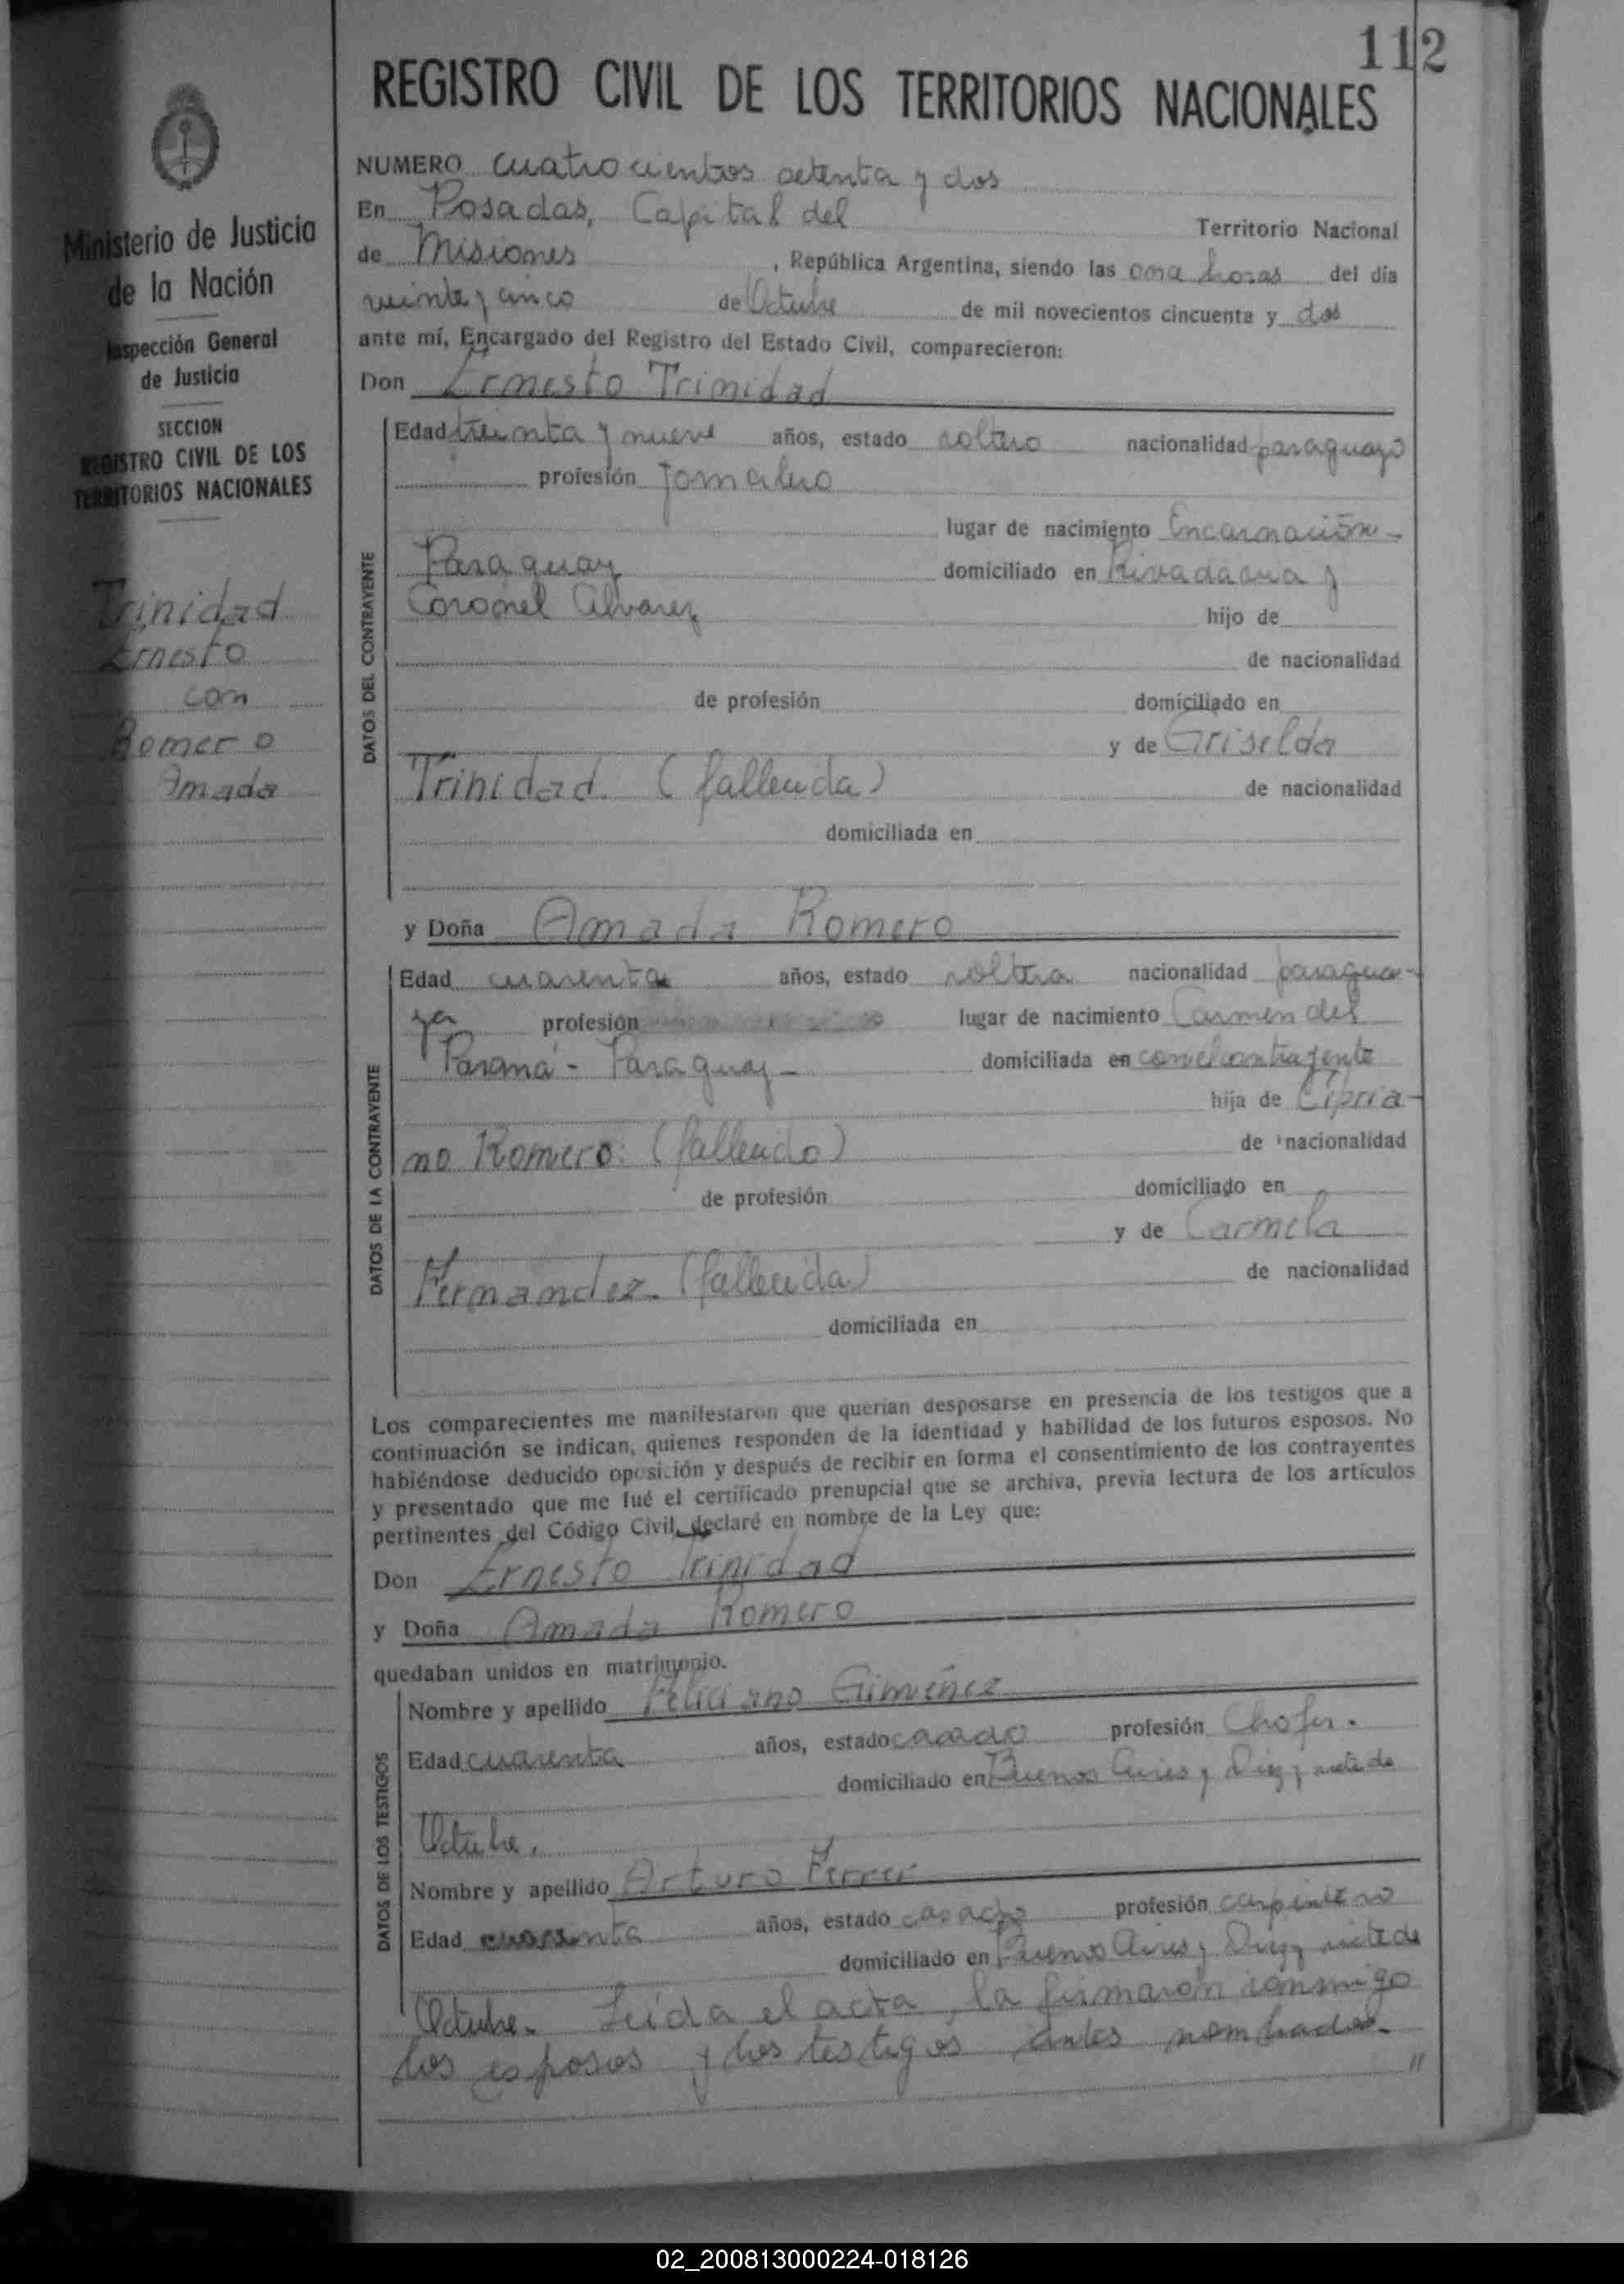 112
REGISTRO CIVIL DE LOS TERRITORIOS NACIONALES
Ministerio de Justicia
de la Nación
Inspección General
de Justicia
SECCION
REGISTRO CIVIL DE LOS
TERRITORIOS NACIONALES
Trinidad
Ernesto
con
Romero
Amada
NUMERO cuatrocientos setenta y dos
En Posadas, Capital del Territorio Nacional
de Misiones, República Argentina, siendo las once horas del día
veinte y cinco de Octubre de mil novecientos cincuenta y dos
ante mí, Encargado del Registro del Estado Civil, comparecieron:
Don Ernesto Trinidad
DATOS DEL CONTRAYENTE
Edad treinta y nueve años, estado soltero nacionalidad paraguayo
profesión Jornalero
lugar de nacimiento Encarnación -
Paraguay domiciliado en Rivadavia y
Coronel Alvarez hijo de
de nacionalidad
de profesión domiciliado en
y de Griselda
Trinidad. (fallecida) de nacionalidad
domiciliada en
y Doña Amada Romero
DATOS DE LA CONTRAYENTE
Edad cuarenta años, estado soltera nacionalidad paragua-
ya profesión lugar de nacimiento Carmen del
Paraná - Paraguay - domiciliada en con el contrayente
hija de Cipria-
no Romero. (fallecido) de nacionalidad
de profesión domiciliado en
y de Carmela
Fernandez. (fallecida) de nacionalidad
domiciliada en
Los comparecientes me manifestaron que querían desposarse en presencia de los testigos que a
continuación se indican, quienes responden de la identidad y habilidad de los futuros esposos. No
habiéndose deducido oposición y después de recibir en forma el consentimiento de los contrayentes
y presentado que me fué el certificado prenupcial que se archiva, previa lectura de los artículos
pertinentes del Código Civil, declaré en nombre de la Ley que:
Don Ernesto Trinidad
y Doña Amada Romero
quedaban unidos en matrimonio.
DATOS DE LOS TESTIGOS
Nombre y apellido Feliciano Giménez
Edad cuarenta años, estado casado profesión Chofer.
domiciliado en Buenos Aires y Diez y siete de
Octubre.
Nombre y apellido Arturo Ferrer
Edad cuarenta años, estado casado profesión carpintero
domiciliado en Buenos Aires y Diez y siete de
Octubre. Leída el acta, la firmaron conmigo
los esposos y los testigos antes nombrados.
//
02_200813000224-018126